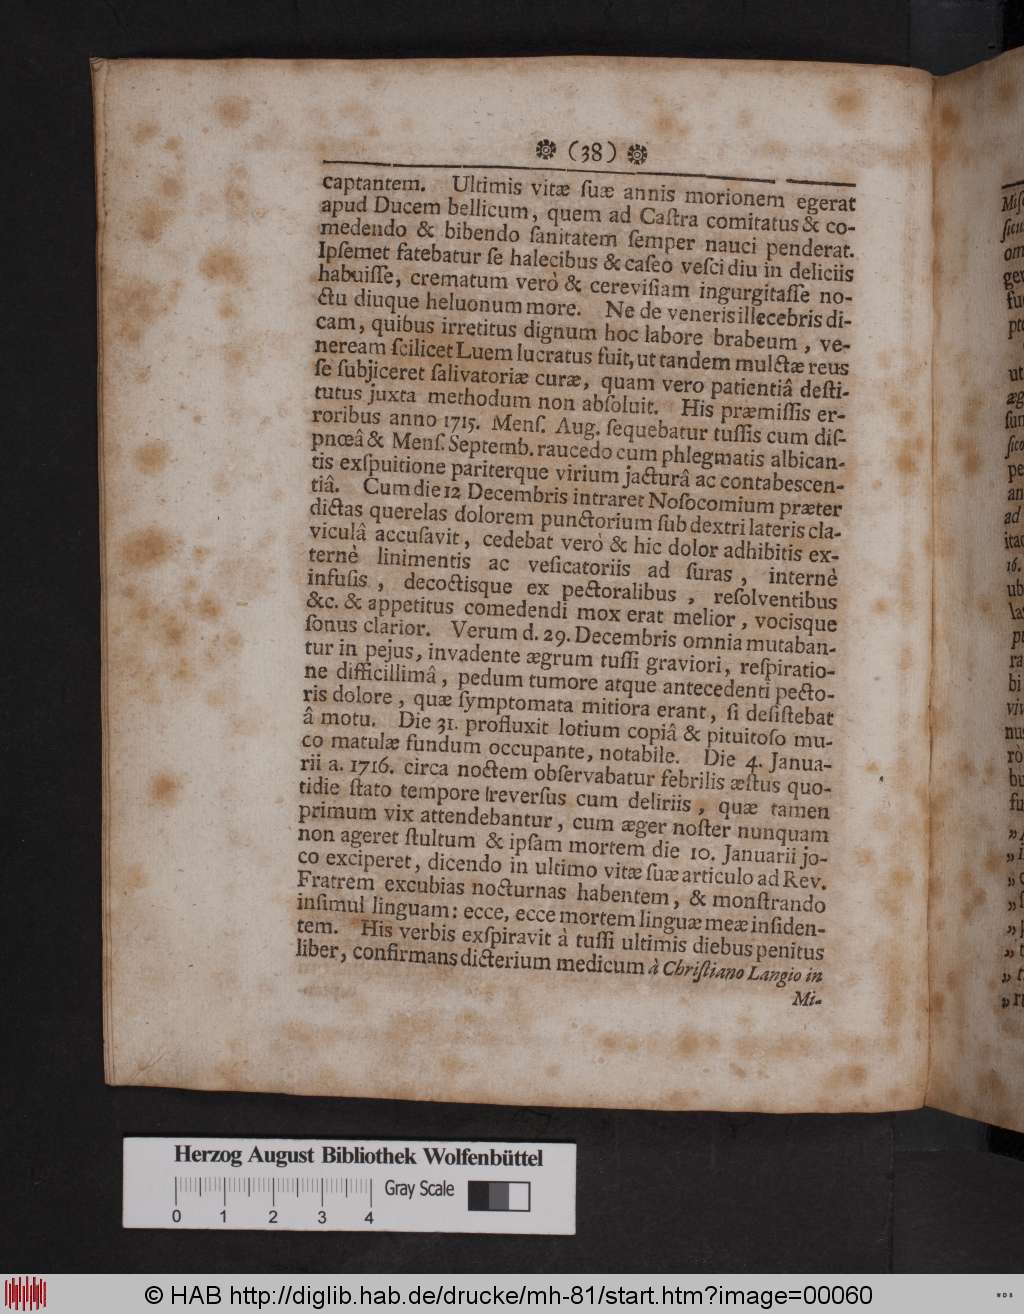 (38)
captantem. Ultimis vitæ ſuæ annis morionem egerat
apud Ducem bellicum, quem ad Caſtra comitatus & co-
medendo & bibendo ſanitatem ſemper nauci penderat.
Ipſemet fatebatur ſe halecibus & caſeo veſci diu in deliciis
habuiſſe, crematum verò & cereviſiam ingurgitaſſe no-
ctu diuque heluonum more. Ne de veneris illecebris di-
cam, quibus irretitus dignum hoc labore brabeum, ve-
neream ſcilicet Luem lucratus fuit, ut tandem mulctæ reus
ſe ſubjiceret ſalivatoriæ curæ, quam vero patientiâ deſti-
tutus juxta methodum non abſoluit. His præmiſſis er-
roribus anno 1715. Menſ. Aug. ſequebatur tuſſis cum diſ-
pnœâ & Menſ. Septemb. raucedo cum phlegmatis albican-
tis exſpuitione pariterque virium jacturâ ac contabescen-
tiâ. Cum die 12 Decembris intraret Noſocomium præter
dictas querelas dolorem punctorium ſub dextri lateris cla-
viculâ accuſavit, cedebat verò & hic dolor adhibitis ex-
ternè linimentis ac veſicatoriis ad ſuras, internè
infuſis, decoctisque ex pectoralibus, reſolventibus
&c. & appetitus comedendi mox erat melior, vocisque
ſonus clarior. Verum d. 29. Decembris omnia mutaban-
tur in pejus, invadente ægrum tuſſi graviori, reſpiratio-
ne difficillimâ, pedum tumore atque antecedenti pecto-
ris dolore, quæ ſymptomata mitiora erant, ſi deſiſtebat
â motu. Die 31. profluxit lotium copiâ & pituitoſo mu-
co matulæ fundum occupante, notabile. Die 4. Janua-
rii a. 1716. circa noctem obſervabatur febrilis æſtus quo-
tidie ſtato tempore reverſus cum deliriis, quæ tamen
primum vix attendebantur, cum æger noſter nunquam
non ageret ſtultum & ipſam mortem die 10. Januarii jo-
co exciperet, dicendo in ultimo vitæ ſuæ articulo ad Rev.
Fratrem excubias nocturnas habentem, & monſtrando
inſimul linguam: ecce, ecce mortem linguæ meæ inſiden-
tem. His verbis exſpiravit à tuſſi ultimis diebus penitus
liber, confirmans dicterium medicum à Chriſtiano Langio in
Mi-
Herzog August Bibliothek Wolfenbüttel
Gray Scale
0 1 2 3 4
© HAB http://diglib.hab.de/drucke/mh-81/start.htm?image=00060